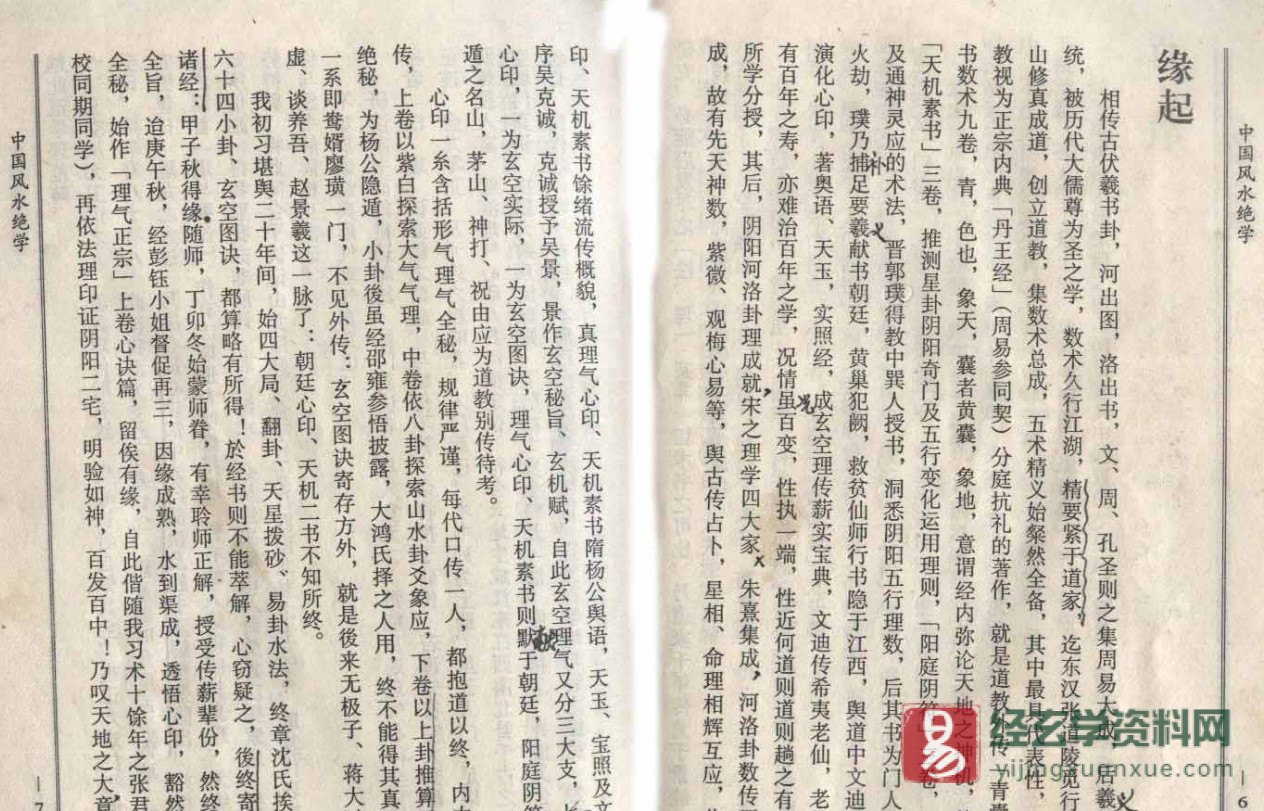 中国风水绝学
—6
缘起
相传古伏羲书卦，河出图，洛出书，文、周、孔圣则之集周易大成，后羲
统，被历代大儒尊为圣之学，数术久行江湖，精要紧于道家，迄东汉张道陵觅行
山修真成道，创立道教，集数术总成，五术精义始粲然全备，其中最具代表性，
教视为正宗内典「丹王经」（周易参同契）分庭抗礼的著作，就是道教外传「青囊
书数术九卷，青，色也，象天，囊者黄囊，象地，意谓经内弥论天地之神机，
「天机素书」三卷，推测星卦阴阳奇门及五行变化运用理则，「阳庭阴
及通神灵应的术法，晋郭璞得教中巽人授书，洞悉阴阳五行理数，后其书为门人
火劫，璞乃捕足要羲献书朝廷，黄巢犯阙，救贫仙师行书隐于江西，舆道中文迪
演化心印，著奥语、天玉，实照经，成玄空理传薪实宝典，文迪传希夷老仙，老
有百年之寿，亦难治百年之学，况情虽百变，性执一端，性近何道则道则趟之有
所学分授，其后，阴阳河洛卦理成就宋之理学四大家，朱熹集成，河洛卦数传
成，故有先天神数，紫微、观梅心易等，舆古传占卜，星相、命理相辉互应，
印、天机素书馀绪流传概貌，真理气心印、天机素书隋杨公舆语，天玉、宝照及
序吴克诚，克诚授予吴景，景作玄空秘旨、玄机赋，自此玄空理气又分三大支，
心印，一为玄空实际，一为玄空图诀，理气心印、天机素书则默于朝廷，阳庭阴
遁之名山，茅山、神打、祝由应为道教别传待考。
心印一系含括形气理气全秘，规律严谨，每代口传一人，都抱道以终，内
传，上卷以紫白探索大气气理，中卷依八卦探索山水卦爻象应，下卷以上卦推算
绝秘，为杨公隐遁，小卦後虽经邵雍参悟披露，大鸿氏择之人用，终不能得其真
一系即鸯婿廖璜一门，不见外传：玄空图诀寄存方外，就是後来无极子、蒋大
虚、谈养吾、赵景羲这一脉了：朝廷心印、天机二书不知所终。
我初习堪舆二十年间，始四大局、翻卦、天星拨砂、易卦水法，终章沈氏挨
六十四小卦、玄空图诀，都算略有所得！於经书则不能萃解，心窃疑之，後终
诸经：甲子秋得缘随师，丁卯冬始蒙师眷，有幸聆师正解，授受传薪辈份，然终
全旨，迨庚午秋，经彭钰小姐督促再三，因缘成熟，水到渠成，透悟心印，豁然
全秘，始作「理气正宗」上卷心诀篇，留俟有缘，自此偕随我习术十馀年之张君
校同期同学），再依法理印证阴阳二宅，明验如神，百发百中！乃叹天地之大
中国风水绝学
—7
易
经玄学资料网
yijingxuanxue.com